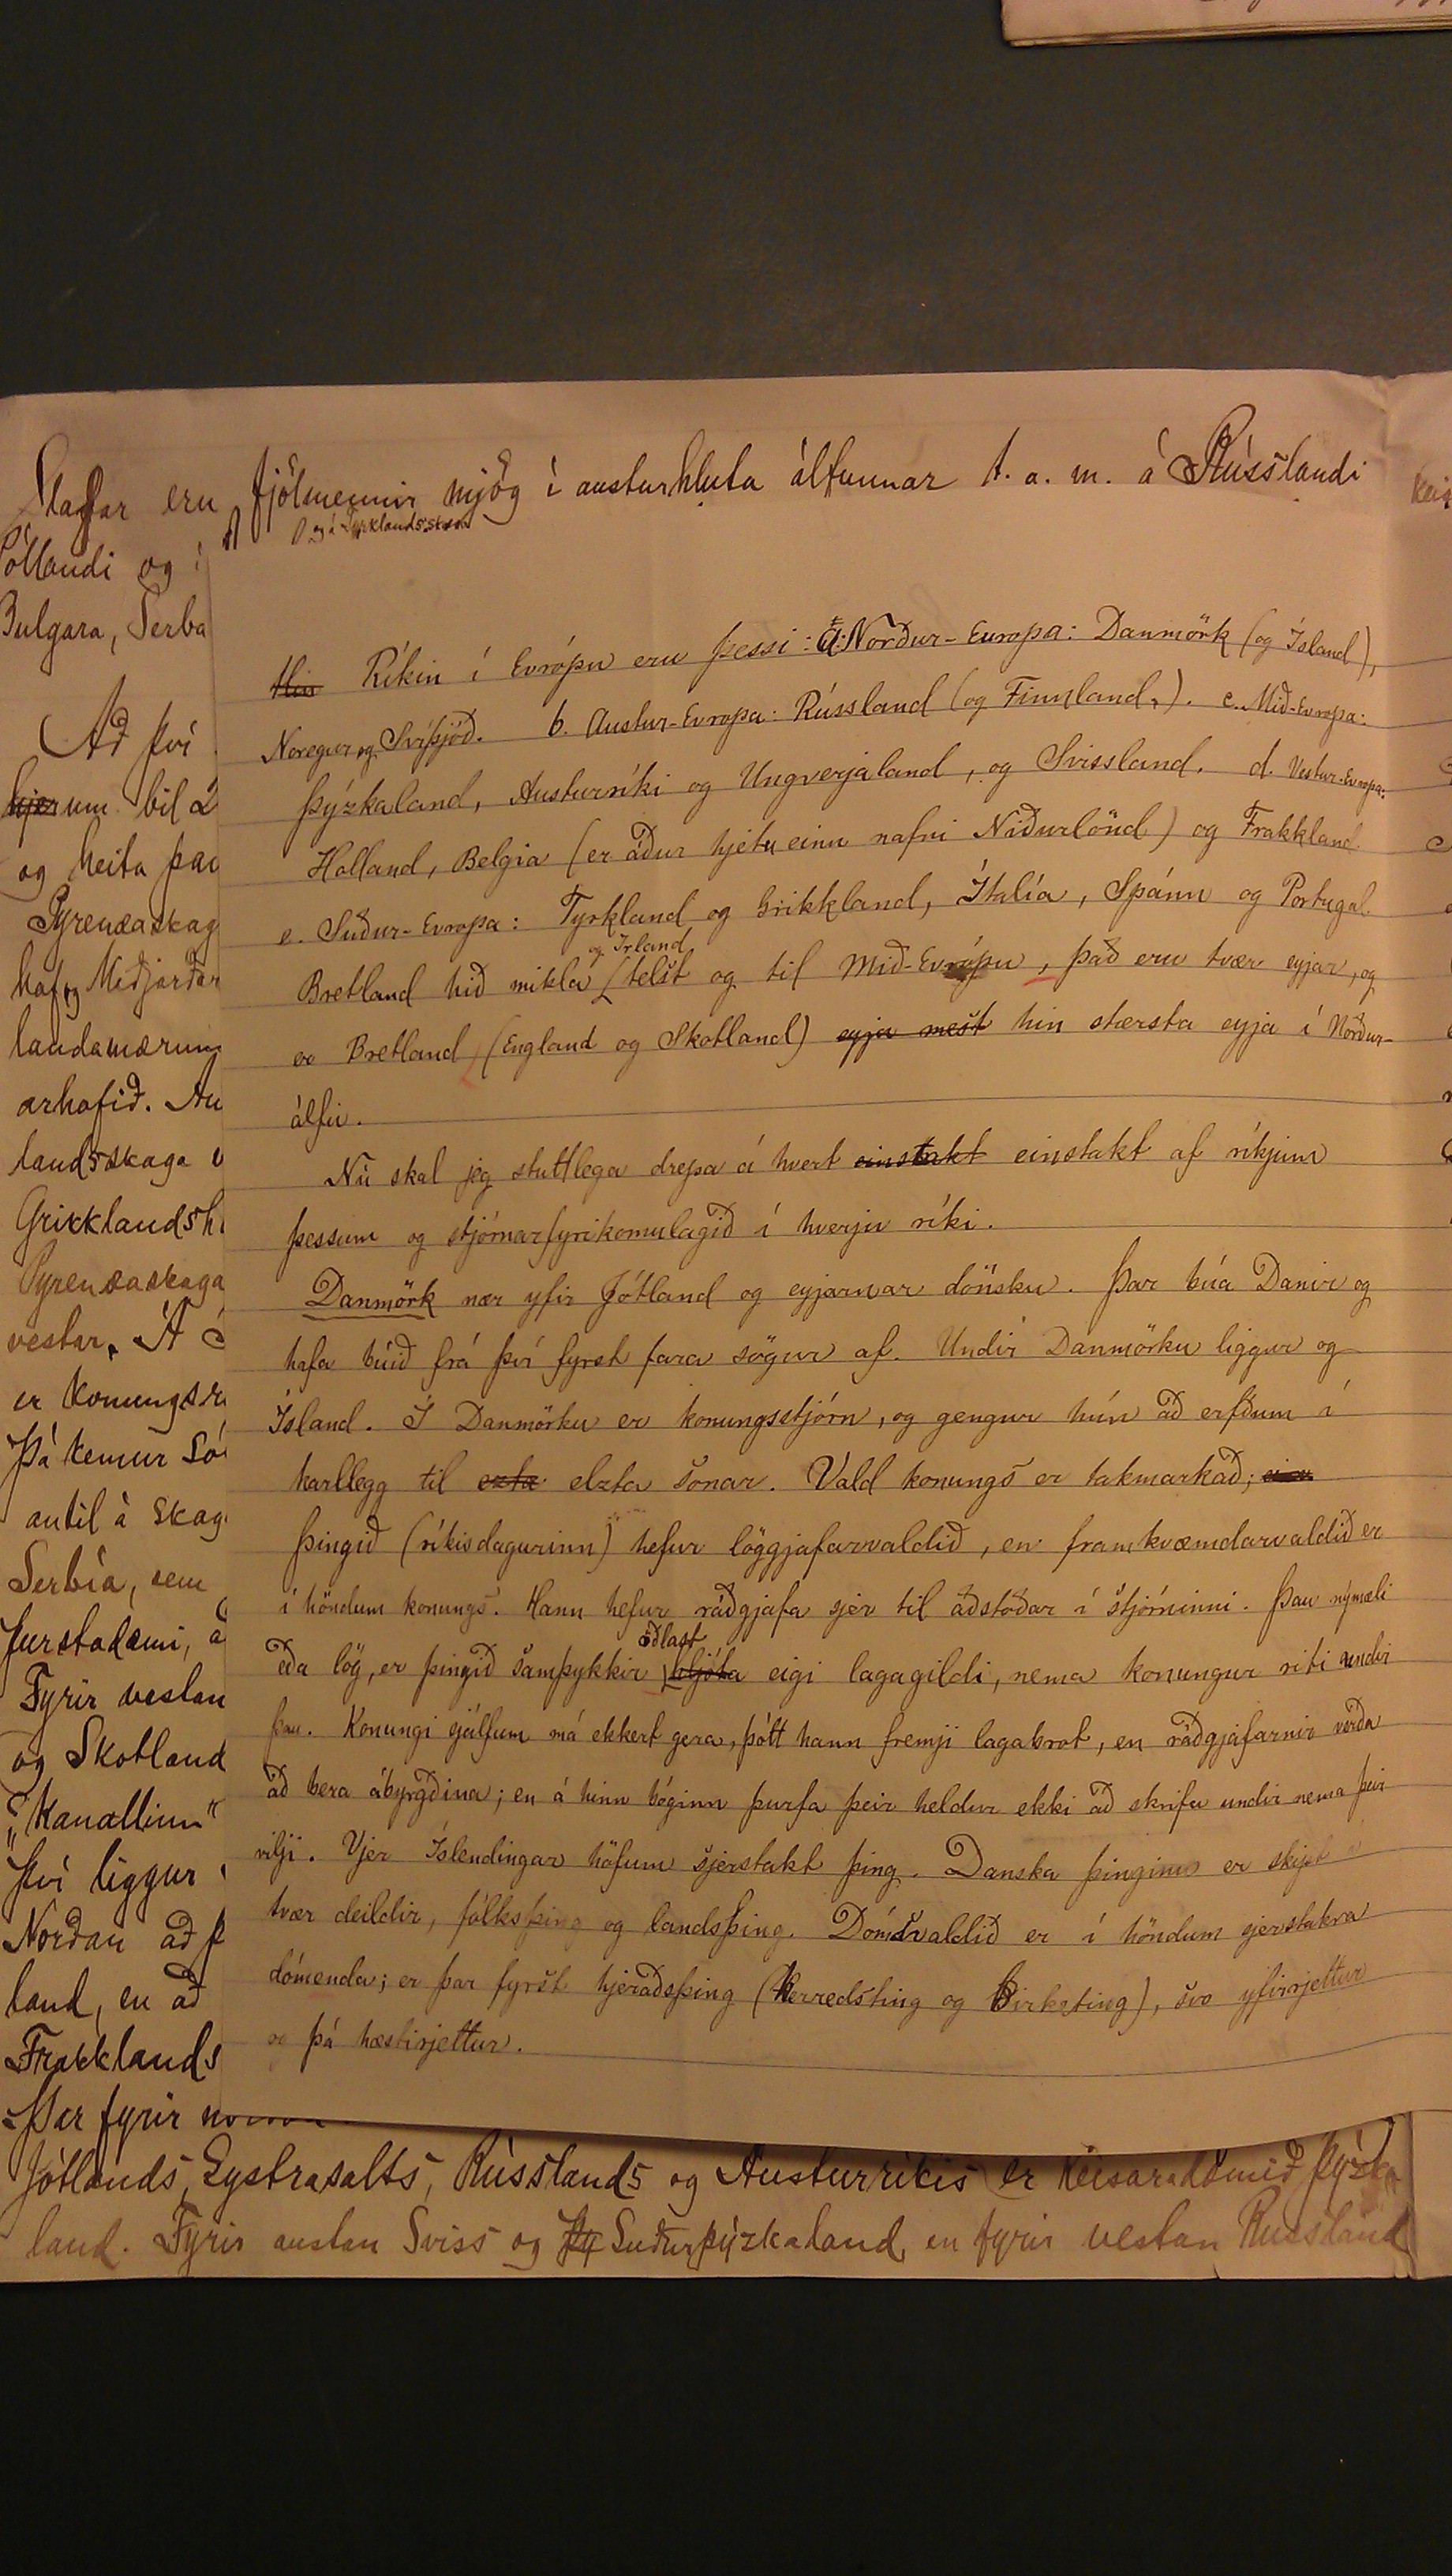 Slaflar eru fjölmennir mjög í austurhluta álfunnar t. a. m. á Rússlandi
og á Tyrklandsskaga
Póllandi og í
Bulgara, Serba
Að því
hjer um bil á
og heita þau
Pyrenæaskag
haf og Miðjarðar
landamærum
arhafið. Au
landsskaga
Grikklandsh
Pyrenæaskaga
vestar. Á
er konungsr
Þá kemur
antil á skag
Serbía, sem
furstadæmi, á
Fyrir vestan
og Skotland
„Kanallinn“
því liggur
Norðan að
land, en að
Frakklands
Þar fyrir
Hin Ríkin í Evrópu eru þessi: a. Norður-Europa: Danmörk (og Ísland),
Noregur og Svíþjóð. b. Austur-Evropa: Rússland (og Finnland.). c. Mið-Evropa:
Þýzkaland, Austurríki og Ungverjaland, og Svissland. d. Vestur-Evropa:
Holland, Belgia (er áður hjetu einu nafni Niðurlönd) og Frakkland.
e. Suður-Evropa: Tyrkland og Grikkland, Ítalía, Spánn og Portugal.
og Irland
Bretland hið mikla (telst og til Mið-Evrópu, það eru tvær eyjar, og
er Bretland (England og Skotland) eyja mest hin stærsta eyja í Norður-
álfu.
Nú skal jeg stuttlega drepa á hvert einstakt einstakt af ríkjum
þessum og stjórnarfyrikomulagið í hverju ríki.
Danmörk nær yfir Jótland og eyjarnar dönsku. Þar búa Danir og
hafa búið frá því fyrst fara sögur af. Undir Danmörku liggur og
Ísland. Í Danmörku er konungsstjórn, og gengur hún að erfðum í
karllegg til ezta elzta sonar. Vald konungs er takmarkað;
þingið (ríkisdagurinn) hefur löggjafarvaldið, en framkvæmdarvaldið er
í höndum konungs. Hann hefur ráðgjafa sjer til aðstoðar í stjórninni. Þau nýmæli
öðlast
eða lög, er þingið samþykkir hljóta eigi lagagildi, nema konungur riti undir
þau. Konungi sjálfum má ekkert gera, þótt hann fremji lagabrot, en ráðgjafarnir verða
að bera ábyrgðina; en á hinn bóginn þurfa þeir heldur ekki að skrifa undir nema þeir
vilji. Vjer Íslendingar höfum sjerstakt þing. Danska þinginu er skipt í
tvær deildir, fólksþing og landsþing. Dómsvaldið er í höndum sjerstakra
dómenda; er þar fyrst hjeraðsþing (Herredsthing og Birketing), svo yfirrjettur
og þá hæstirjettur.
Jótlands, Eystrasalts, Rússlands og Austurríkis er keisaradæmið Þýzka
land. Fyrir austan Sviss og Þý Suðurþýzkaland, en fyrir vestan Russland